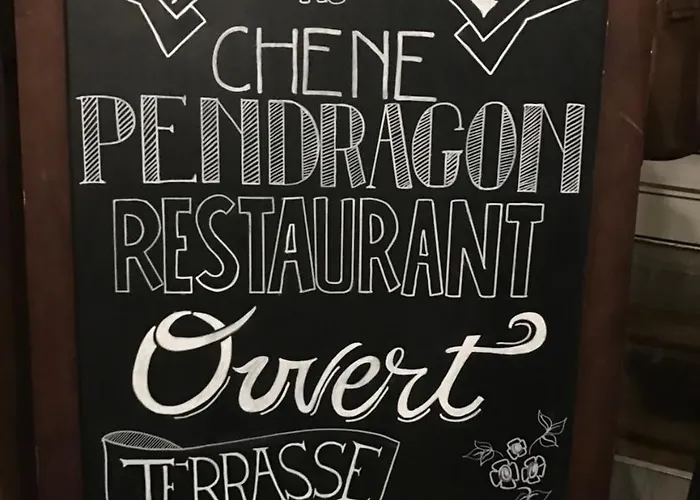 AU
CHENE
PENDRAGON
RESTAURANT
Ouvert
TERRASSE